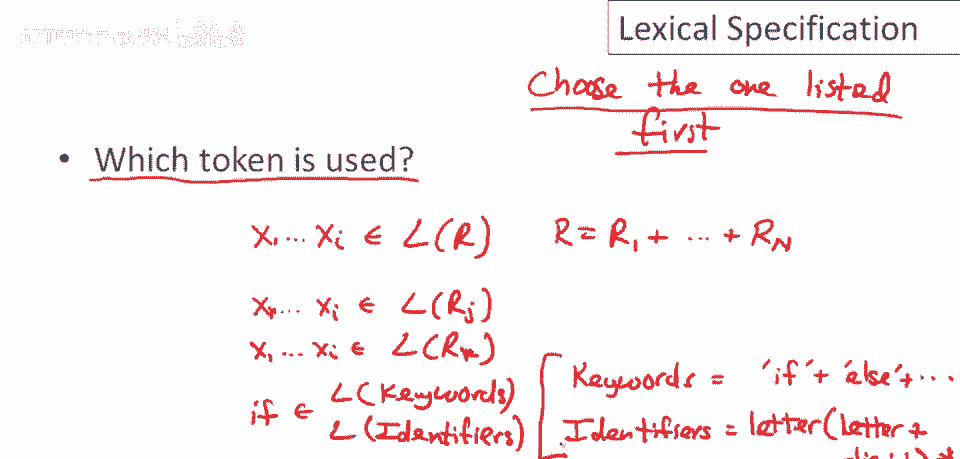 Lexical Specification
Choose the one listed
first
• Which token is used?
x₁ ... xᵢ ∈ L(R) R = R₁ + ... + R_N
x₁ ... xᵢ ∈ L(Rⱼ)
x₁ ... xᵢ ∈ L(Rₖ)
if ∈ L(Keywords)
L(Identifiers)
Keywords = 'if' + 'else' + ...
Identifiers = letter(letter +